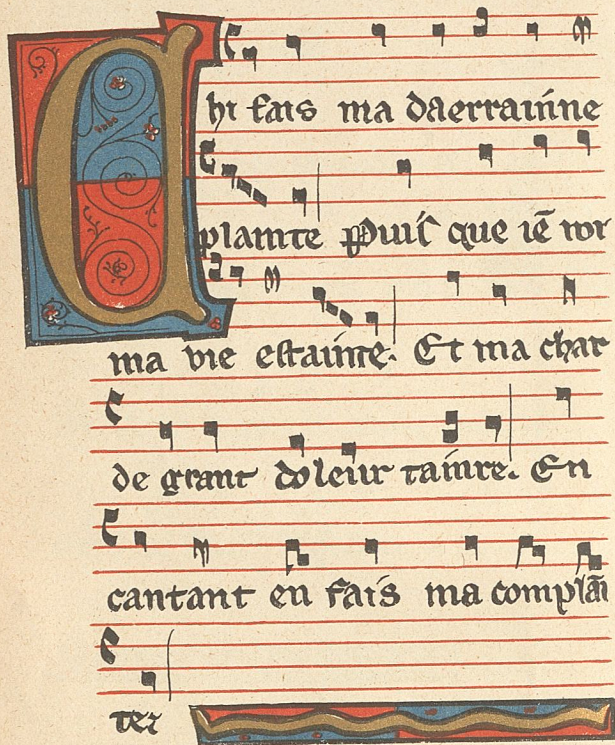 Chi fais ma daerrainne
plainte Puis que iē uoi
ma vie estainte. Et ma char
de grant doleur tainte. En
cantant en fais ma complāī
te